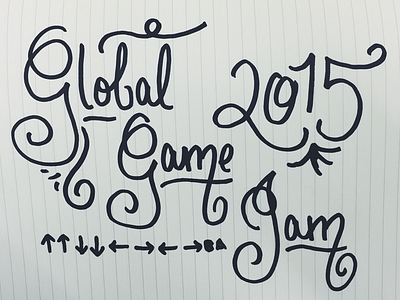 Global
Game
Jam
2015
↑↑↓↓←→←→BA